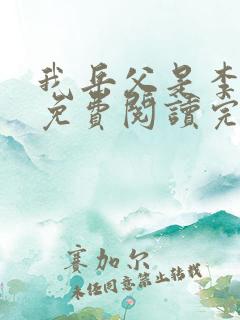 我岳父是李
免費閱讀完
賽加尔
未经同意禁止转载